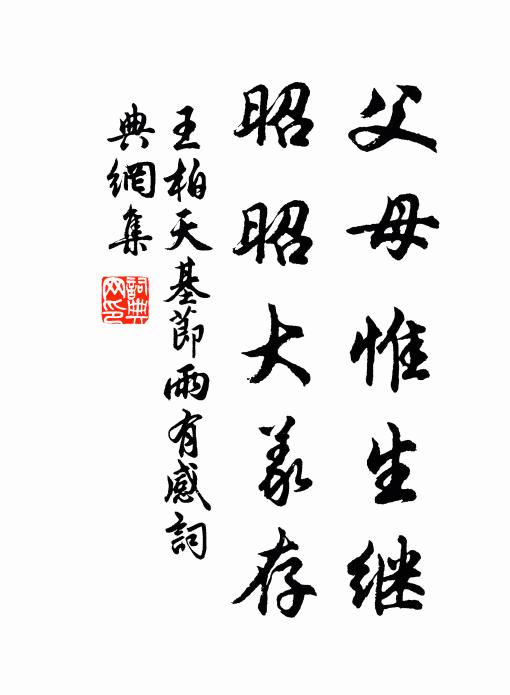 父母惟生继
昭昭大义存
王柏天基節雨有感詞
典網集
詞典
网印